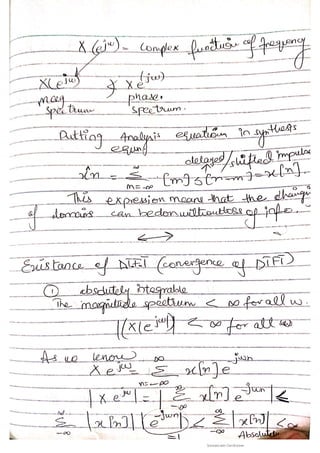 X(e^jω) - Complex function of frequency
X(e^jω) ∡ X e^(jω)
mag phase.
spectrum spectrum.
Putting Analysis equation in synthesis
equn
delayed/shifted impulse
x̂n = Σ m=-∞ [m] δ[n-m] = x[n].
This expression means that the change
of domains can be done without loss of info.
↔
Existance of DTFT (convergence of DTFT)
① absolutely integrable
The magnitude spectrum < ∞ for all ω.
|(X(e^jω)| < ∞ for all ω
As we know
X e^jω = Σ n=-∞ ∞ x[n] e^-jωn
|X e^jω| = |Σ -∞ ∞ x[n] e^-jωn| ≤
Σ -∞ ∞ |x[n]| |e^-jωn| < Σ -∞ ∞ |x[n]| < ∞
=1 Absolutely
Scanned with CamScanner